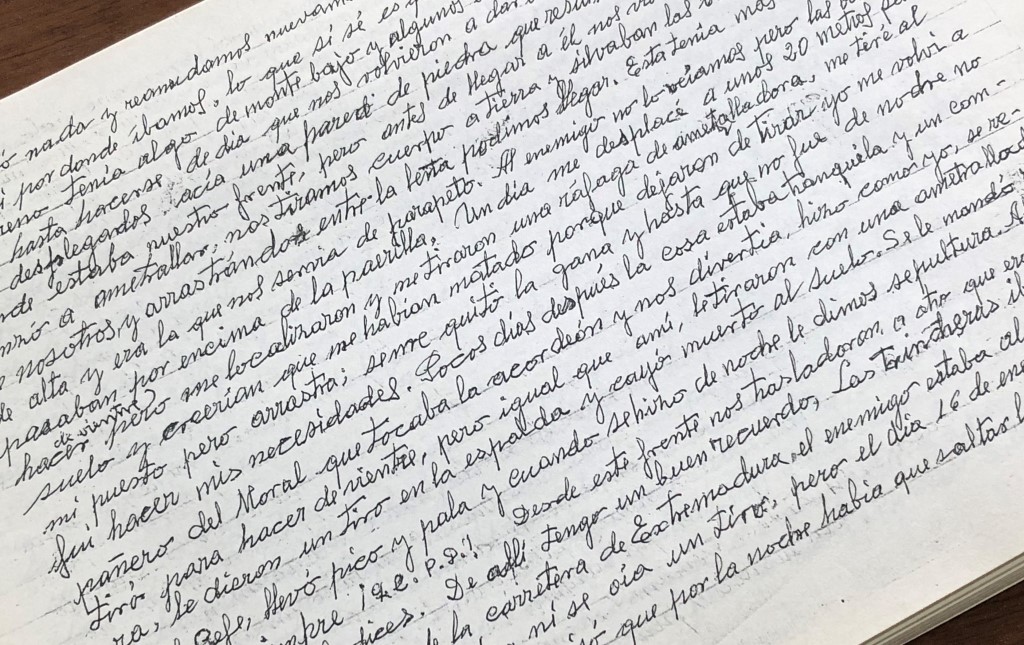 nada y reanudamos nuevam
por donde íbamos, lo que si sé es q
reno tenía algo de monte bajo y algunos
hasta hacerse de día que nos volvieron a dar
desplegados. acía una pared de piedra que
nde estaba nuestro frente, pero antes de llegar a él nos
a ametrallar, nos tiramos cuerpo a tierra y silvaban las
nosotros, y arrastrándos entre la tierra podimos llegar. Esta tenía mas
de alta y era la que nos servía de parapeto. Al enemigo no lo veíamos pero las
pasaban por encima de la paerilla. Un día me desplacé a unos 20 metros
hacer de vientre pero me localizaron y me tiraron una ráfaga de ametralladora, me tiré al
suelo y crerían que me habían matado porque dejaron de tirar, yo me volví a
mi puesto pero arrastra; seme quitó la gana y hasta que no fue de noche no
fuí hacer mis necesidades. Pocos días después la cosa estaba tranquila y un com-
pañero del Moral que tocaba la acordeón y nos divertía, hizo como yo, se re-
tiró para hacer de vientre, pero igual que amí, le tiraron con una ametrallado
ra, le dieron un tiro en la espalda y cayó muerto al suelo. Se le mandó
Gefe, llevó pico y pala y cuando se hizo de noche le dimos sepultura.
mpre ¡ q.e.p.d.! Desde este frente nos trasladoran a otro que era
De allí tengo un buen recuerdo, Las trincheras
de la carretera de Extremadura, el enemigo estaba al
ni se oía un tiro, pero el día 16 de ene
que por la noche había que saltar la